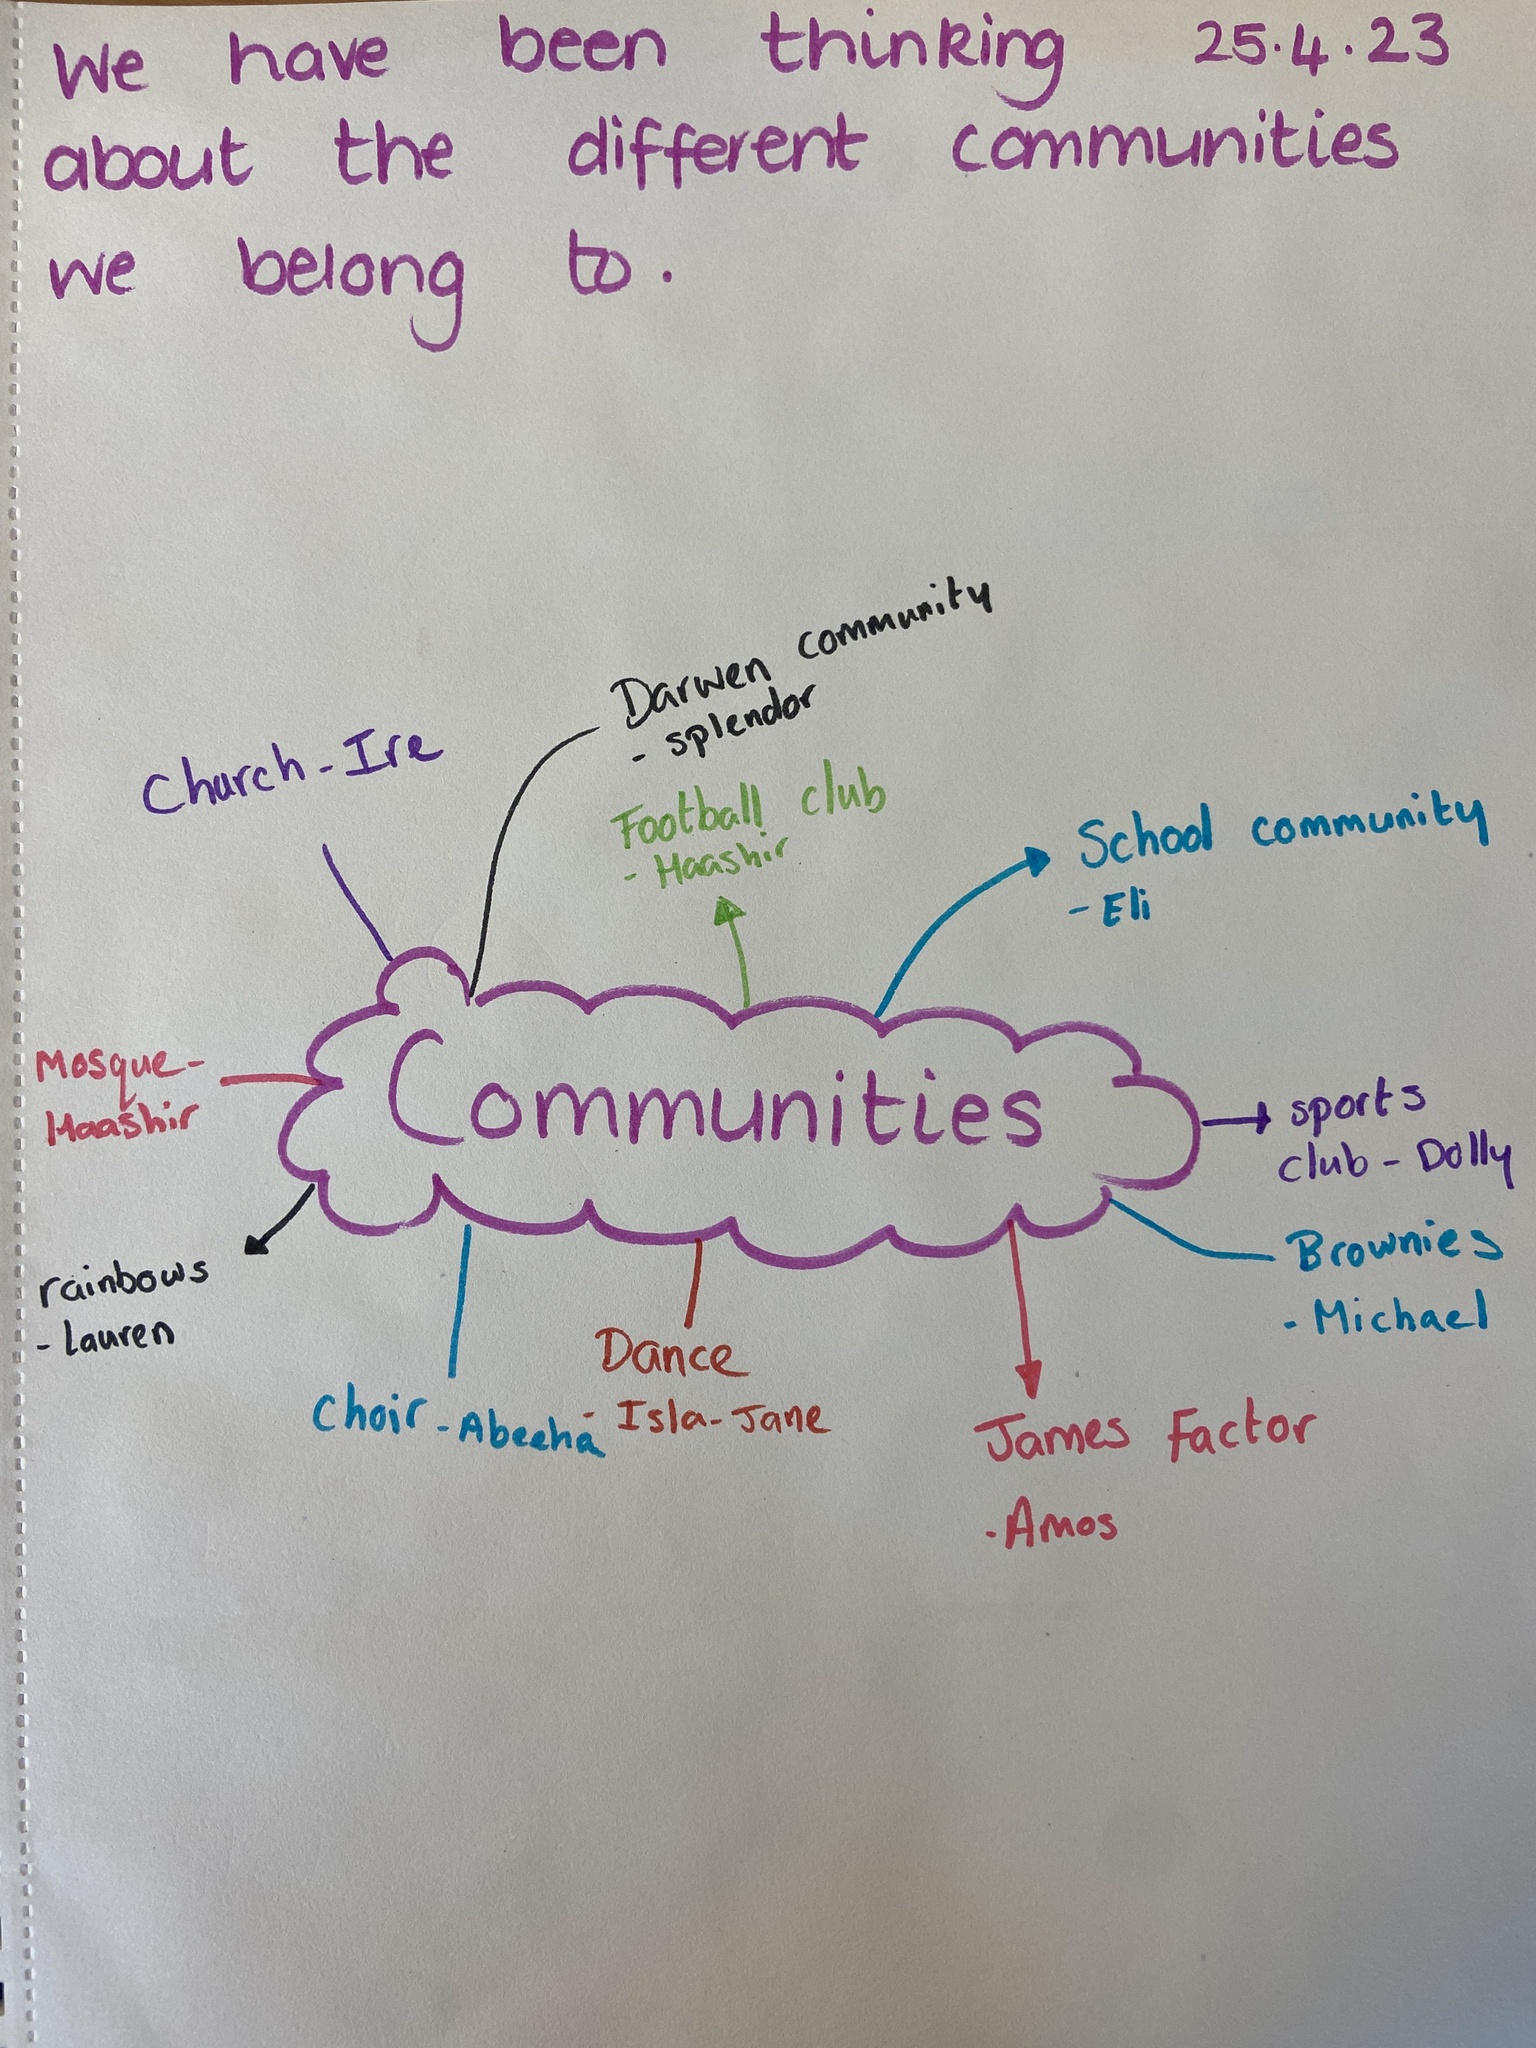 We have been thinking 25.4.23
about the different communities
we belong to.
Darwen community
- splendor
Church - Ire
Football club
- Haashir
School community
- Eli
Mosque -
Haashir
Communities
sports
club - Dolly
rainbows
- Lauren
Brownies
- Michael
Choir - Abeeha
Dance
- Isla-Jane
James Factor
- Amos